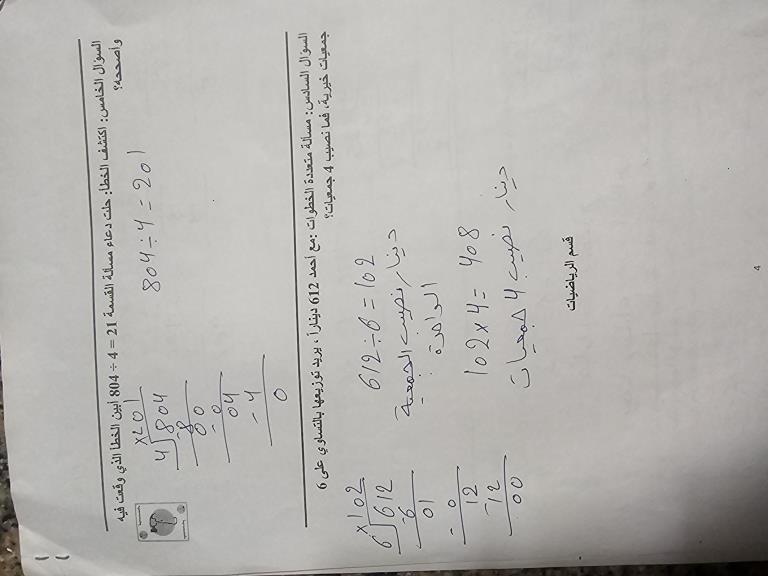 السؤال الخامس: اكتشف الخطأ: حلت دعاء مسألة القسمة 804 ÷ 4 = 21 أبين الخطأ الذي وقعت فيه
وأصححه؟
×201
4 804
-8
00
-0
04
-4
0
804 ÷ 4 = 201
السؤال السادس: مسألة متعددة الخطوات :مع أحمد 612 ديناراً ، يريد توزيعها بالتساوي على 6
جمعيات خيرية، فما نصيب 4 جمعيات؟
×102
6 612
-6
01
-0
12
-12
00
612 ÷ 6 = 102
دينار نصيب الجمعية
الواحدة
102 × 4 = 408
دينار نصيب 4 جمعيات
قسم الرياضيات
4